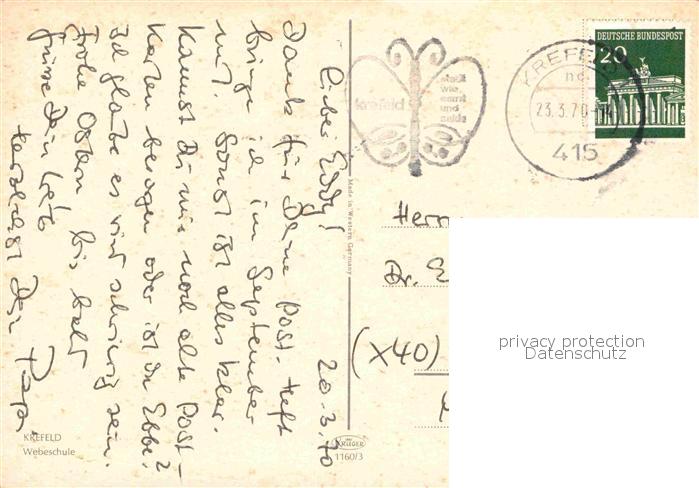 20.3.70
Lieber Eddy!
Dank für Deine Post. Heft
bringe ich im September
mit. Sonst ist alles klar.
Kannst Du mir noch alte Post-
Karten besorgen oder ist da Ebbe?
Ich glaube es wird schwierig sein.
Frohe Ostern bis bald
Grüsse Dein
herzlichst Dein Papa
KREFELD
Webeschule
Made in Western Germany
KRÜGER
1160/3
krefeld
samt
und
seide
KREFELD
23.3.70
415
DEUTSCHE BUNDESPOST
20
Herrn
Dr. E
(X40)
privacy protection
Datenschutz